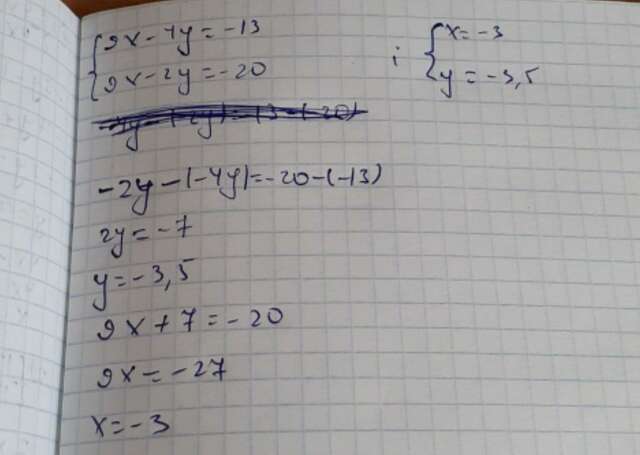 {9x-4y=-13 ; {x=-3
{9x-2y=-20 {y=-3,5
-2y-(-4y)=-20-(-13)
2y=-7
y=-3,5
9x+7=-20
9x=-27
x=-3